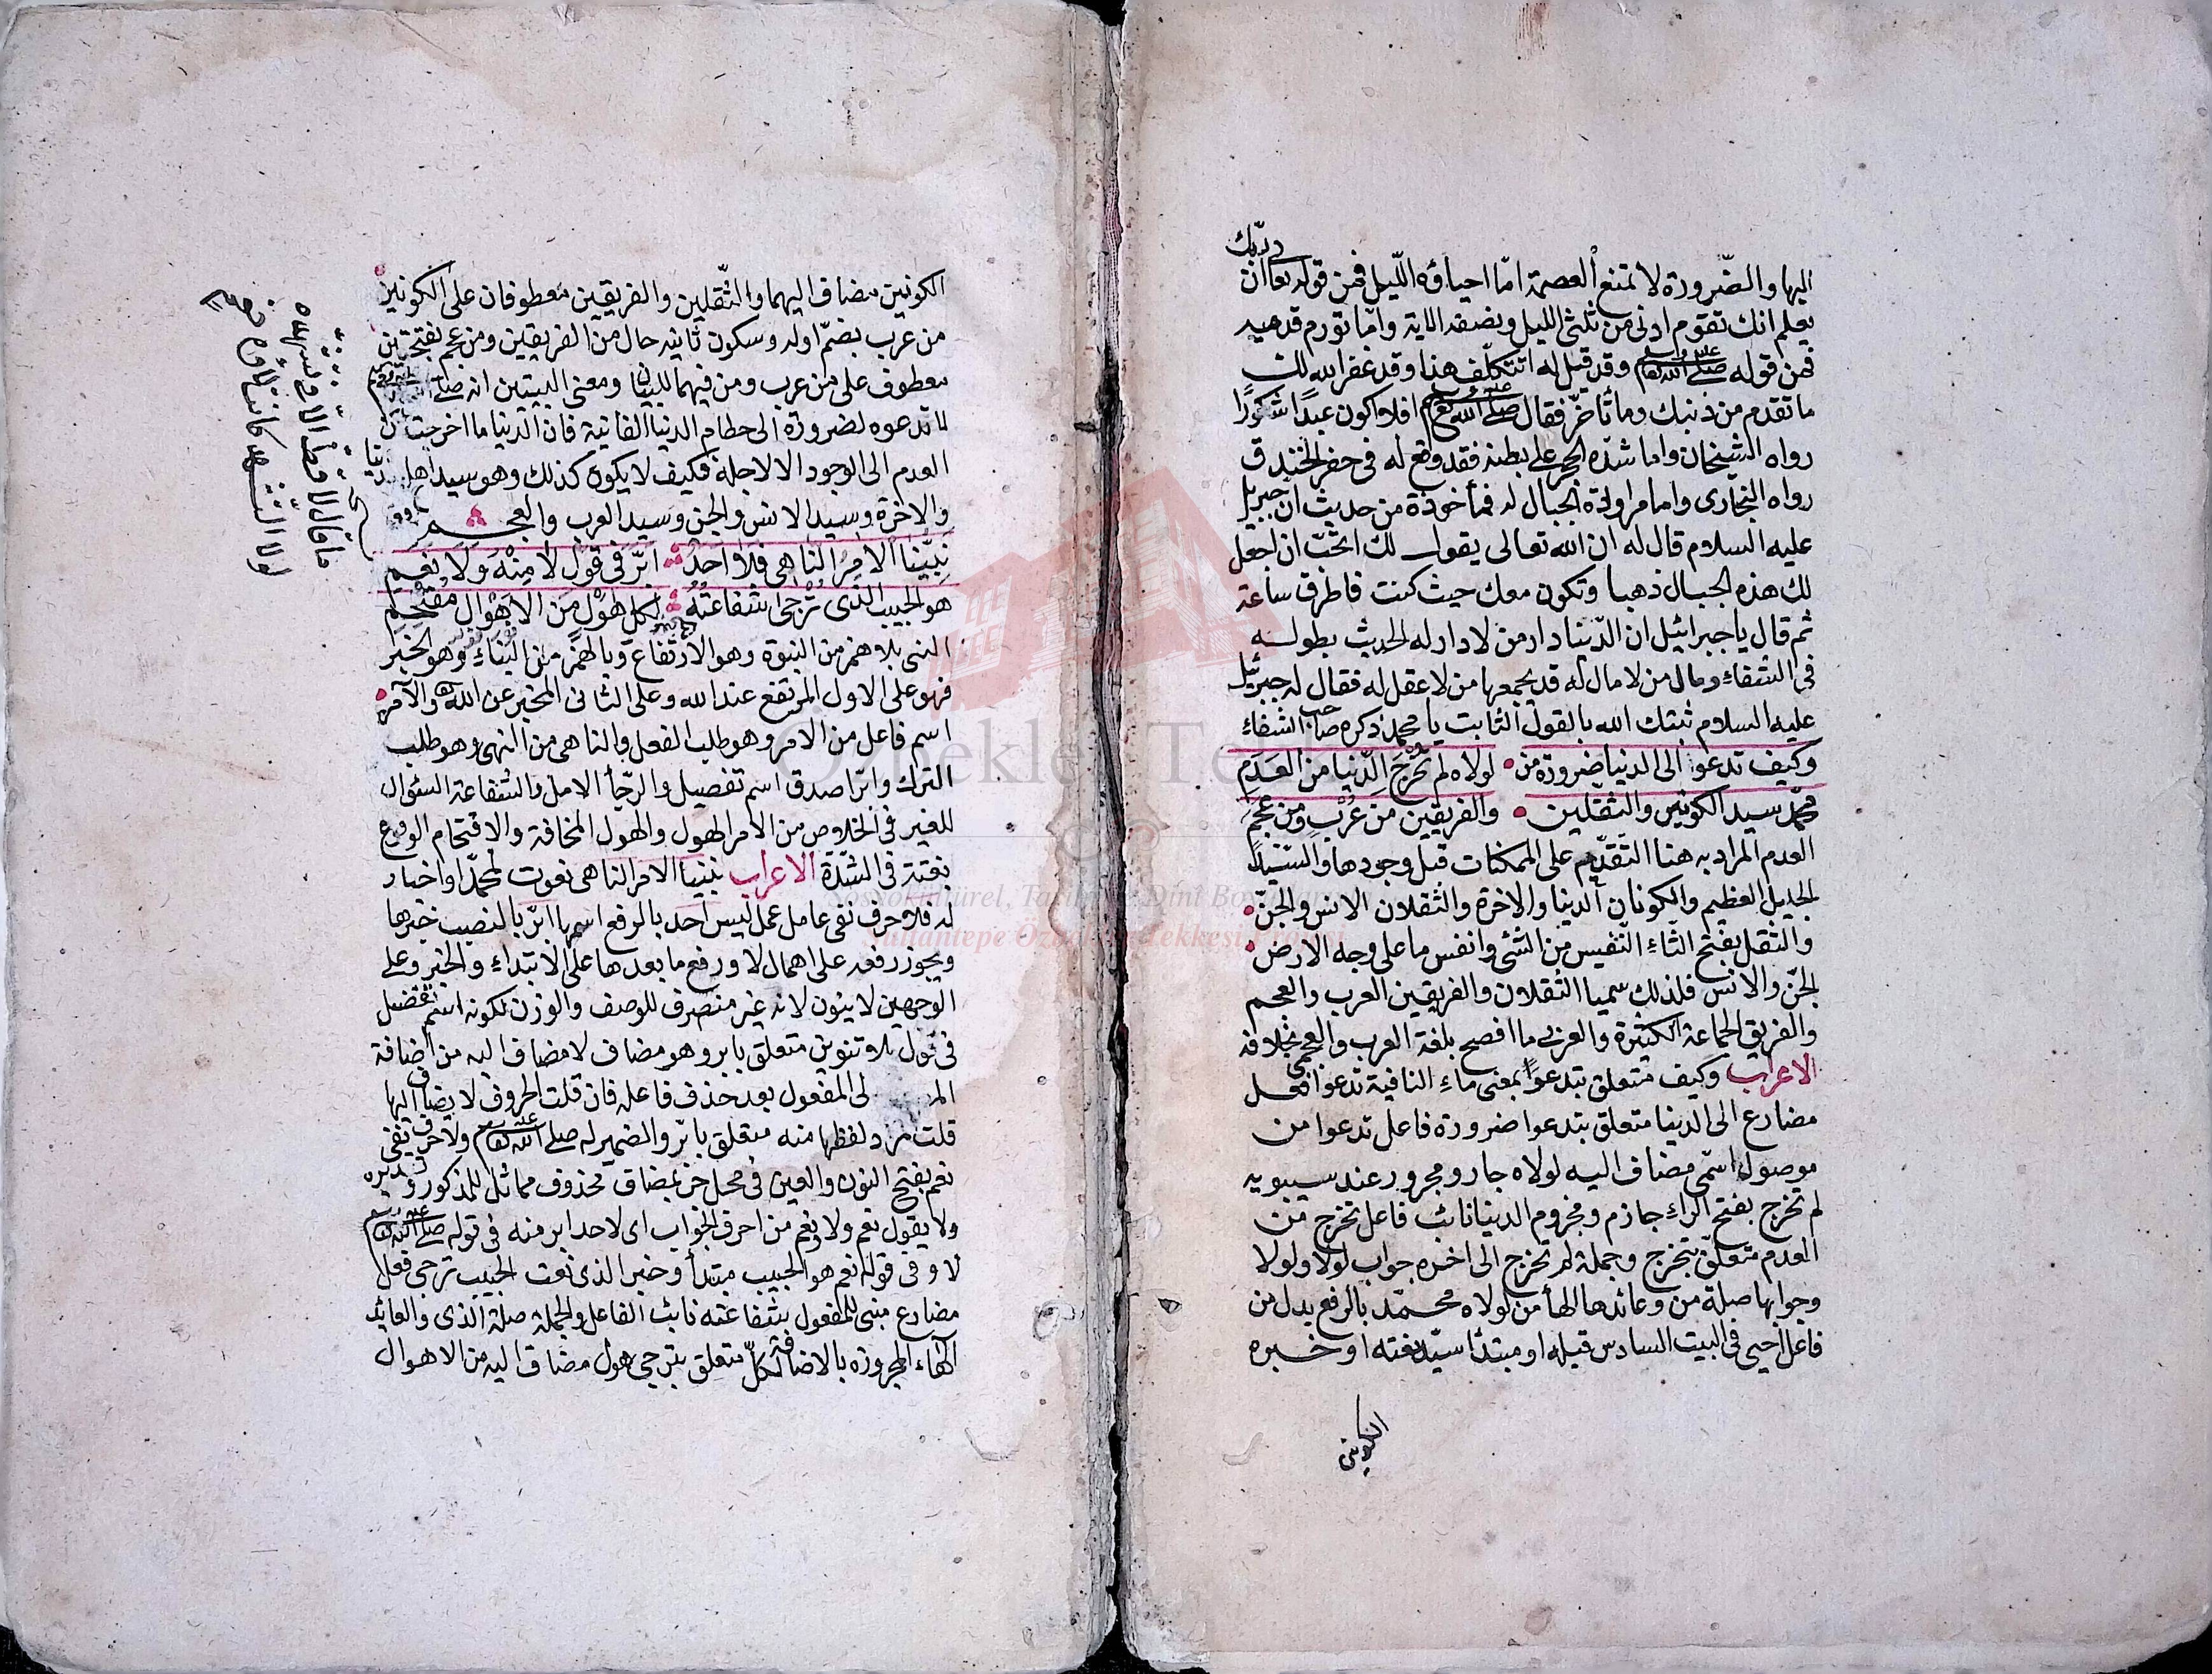 اليها والضّرورة لا تمنع العصمة امّا احياؤه اللّيل فمن قوله تعا انّ ربّك
يعلم انك تقوم ادنى من ثلثى الليل ونصفه الاية وامّا تورم قدميه
فمن قوله صلى الله عليه وسلم وقد قيل له اتتكلّف هذا وقد غفر الله لك
ما تقدم من ذنبك وما تأخّر فقال صلى الله عليه وسلم افلا اكون عبدًا شكورًا
رواه الشيخان واما شدّه الحجر على بطنه فقد وقع له فى حفر الخندق
رواه البخارى واما مراودة الجبال له فمأخوذة من حديث انّ جبريل
عليه السلام قال له ان الله تعالى يقول لك اتحبّ ان اجعل
لك هذه الجبال ذهبا وتكون معك حيث كنت فاطرق ساعة
ثم قال يا جبرائيل ان الدّنيا دار من لا دار له الحديث بطوله
فى الشفاء ومال من لا مال له قد يجمعها من لا عقل له فقال له جبرئيل
عليه السلام ثبتك الله بالقول الثابت يا محمد ذكره صاحب الشفاء
وكيف تدعوا الى الدنيا ضرورة من لولاه لم تخرج الدّنيا من العدم
محمّد سيد الكونين والثقلين والفريقين من عرب ومن عجم
العدم المراد به هنا التقدّم على الممكنات قبل وجودها والسّيّد
الجليل العظيم والكونان الدنيا والاخرة والثقلان الانس والجنّ
والثقل بفتح الثاء النّفيس من الشئ وانفس ما على وجه الارض
الجنّ والانس فلذلك سميا الثقلان والفريقين العرب والعجم
والفريق الجماعة الكثيرة والعربى ما افصح بلغة العرب والعجمى بخلافه
الاعراب وكيف متعلق بتدعوا بمعنى ماء النافية تدعوا فعل
مضارع الى الدنيا متعلق بتدعوا ضرورة فاعل تدعوا من
موصول اسمى مضاف اليه لولاه جار ومجرور عند سيبويه
لم تخرج بفتح الراء جازم ومجزوم الدنيا نائب فاعل تخرج من
العدم متعلّق بتخرج وجملة لم تخرج الى اخره جواب لولا ولولا
وجوابها صلة من وعائدها الهأ من لولاه محمّد بالرفع بدل من
فاعل احيى فى البيت السادس قبله او مبتدأ سيّد نعته او خبره
الكونين
الكونين مضاف اليهما والثّقلين والفريقين معطوفان على الكونين
من عرب بضمّ اوله وسكون ثانيه حال من الفريقين ومن عجم بفتحتين
معطوف على من عرب ومن فيهما للبيان ومعنى البيتين انه صلى
لا تدعوه لضرورة الى حطام الدنيا الفانية فان الدنيا ما اخرجت من
العدم الى الوجود الا لاجله فكيف لا يكون كذلك وهو سيد اهل الدنيا
والاخرة وسيد الانس والجن وسيد العرب والعجم
نبيّنا الامر النّاهى فلا احد ابرّ فى قول لا منه ولا نعم
هو الحبيب الذى ترجى شفاعته لكل هول من الاهوال مقتحم
النبى بلا همز من النبوة وهو الارتفاع وبالهمز من النباء وهو الخبر
فهو على الاول المرتفع عند الله وعلى الثانى المخبر عن الله والآمر
اسم فاعل من الامر وهو طلب الفعل والناهى من النهى وهو طلب
الترك وابرّ اصدق اسم تفضيل والرّجأ الامل والشفاعة السئوال
للغير فى الخلاص من الامر الهول والهول المخافة والاقتحام الوقوع
بغتة فى الشدّة الاعراب نبينا الامر الناهى نعوت لمحمّد او اخبار
له فلا حرف نفى عامل عمل ليس احد بالرفع اسمها ابرّ بالنصب خبرها
ويجوز رفعه على اهمال لا ورفع ما بعدها على الابتداء والخبر وعلى
الوجهين لا ينون لانه غير منصرف للوصف والوزن لكونه اسم تفضيل
فى قول بلا تنوين متعلق بابر وهو مضاف لا مضاف اليه من اضافة
لى المفعول بعد حذف فاعله فان قلت الحروف لا يضاف اليها
قلت مراد لفظها منه متعلق بابّر والضمير له صلى الله عليه وسلم ولا حرف نفى
نعم بفتح النون والعين فى محل جرّ بمضاف محذوف مماثل للمذكور وتقديره
ولا يقول نعم ولا ونعم من احرف الجواب اى لا احد ابر منه فى قوله صلى الله عليه وسلم
لا وفى قوله نعم هو الحبيب مبتدأ وخبر الذى نعت الحبيب ترجى فعل
مضارع مبنى للمفعول شفاعته نائب الفاعل والجملة صلة الذى والعائد
الهاء المجرورة بالاضافة لكلّ متعلق بترجى هول مضاف اليه من الاهوال
ما قال لا قطّ الّا فى تشهّده
لولا التشهد كانت لاؤه نعم